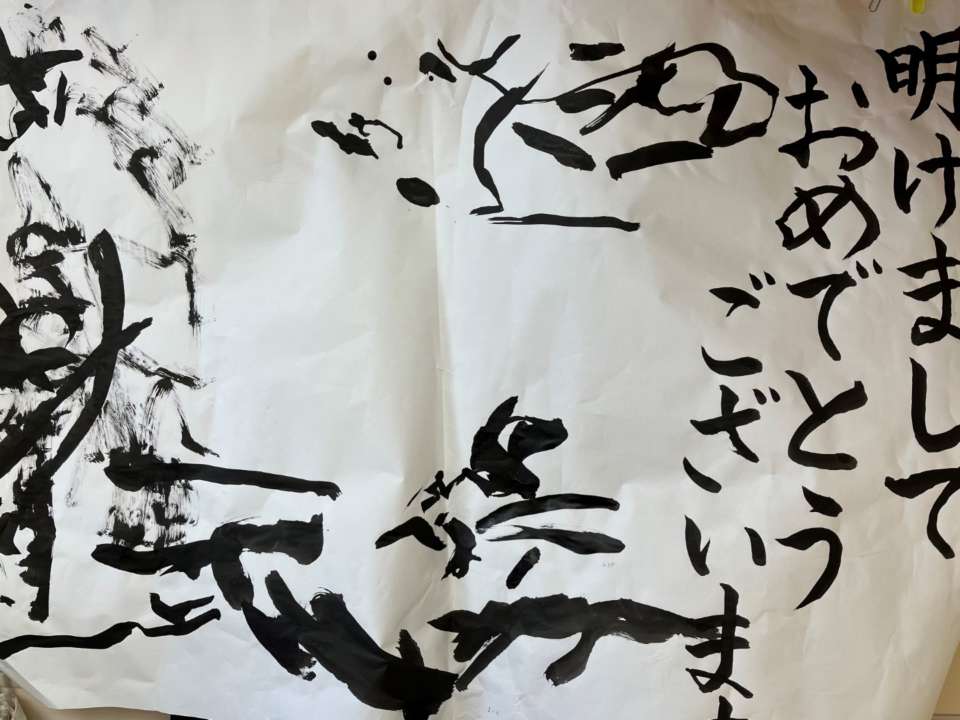 明けまして
おめでとう
ございま